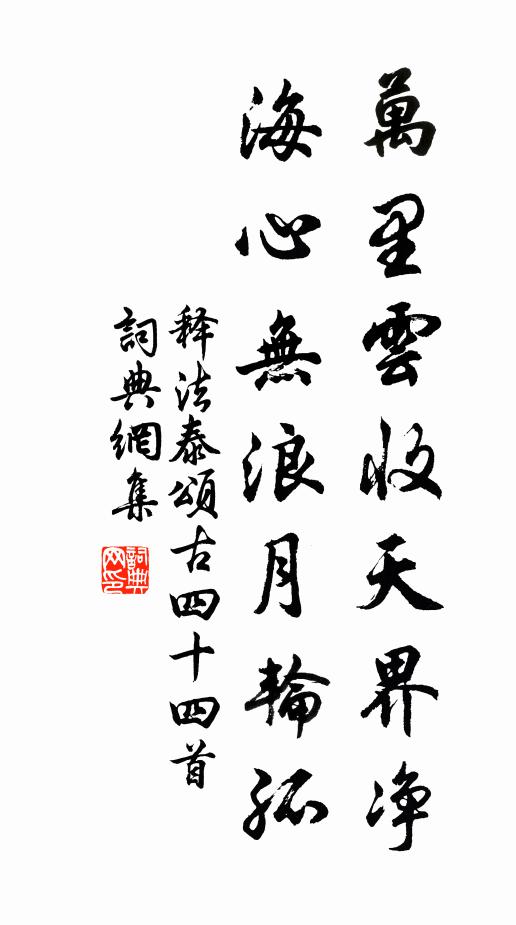 萬里雲收天界净
海心無浪月輪孤
释法泰頌古四十四首
詞典網集
詞典網印